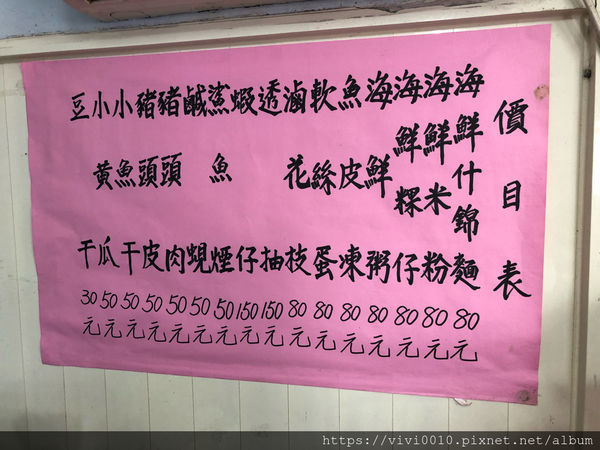 價目表
海鮮什錦麵80元
海鮮米粉80元
海鮮粿仔80元
海鮮粥80元
魚皮凍80元
軟絲蛋80元
滷花枝80元
透抽150元
蝦仔150元
鯊魚煙50元
鹹蜆50元
豬頭肉50元
豬頭皮50元
小魚干50元
小黃瓜50元
豆干30元
https://vivi0010.pixnet.net/album